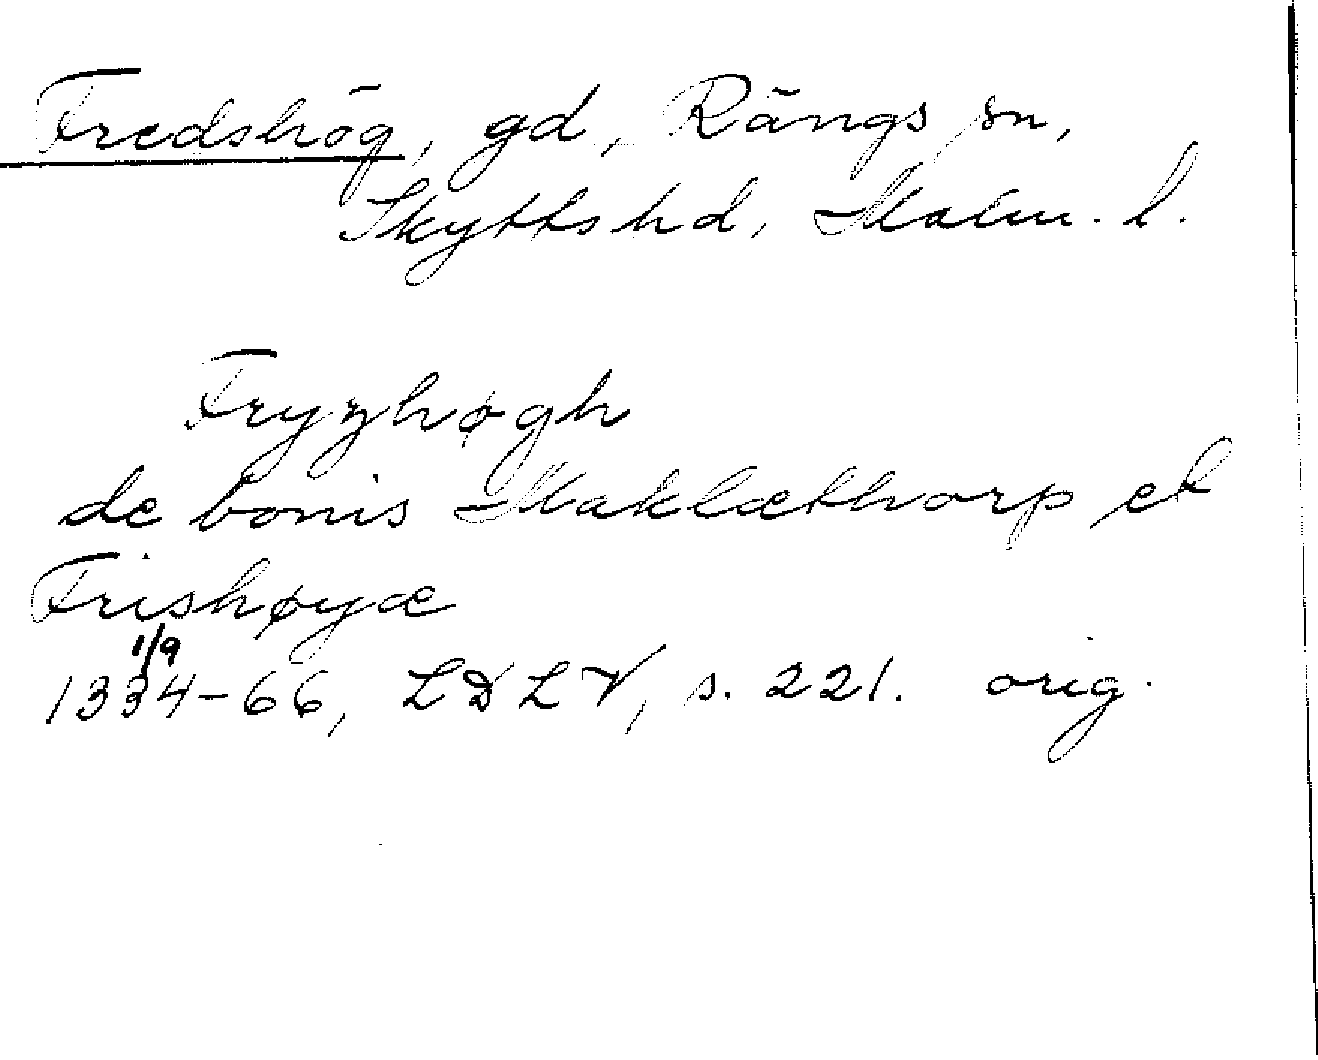 Fredshög, gd, Rängs sn,
Skytts hd, Malm. l.
Fryzhøgh
de bonis Maklæthorp et
Frishøyæ
1/9
1334-66, LDLV, s. 221. orig.